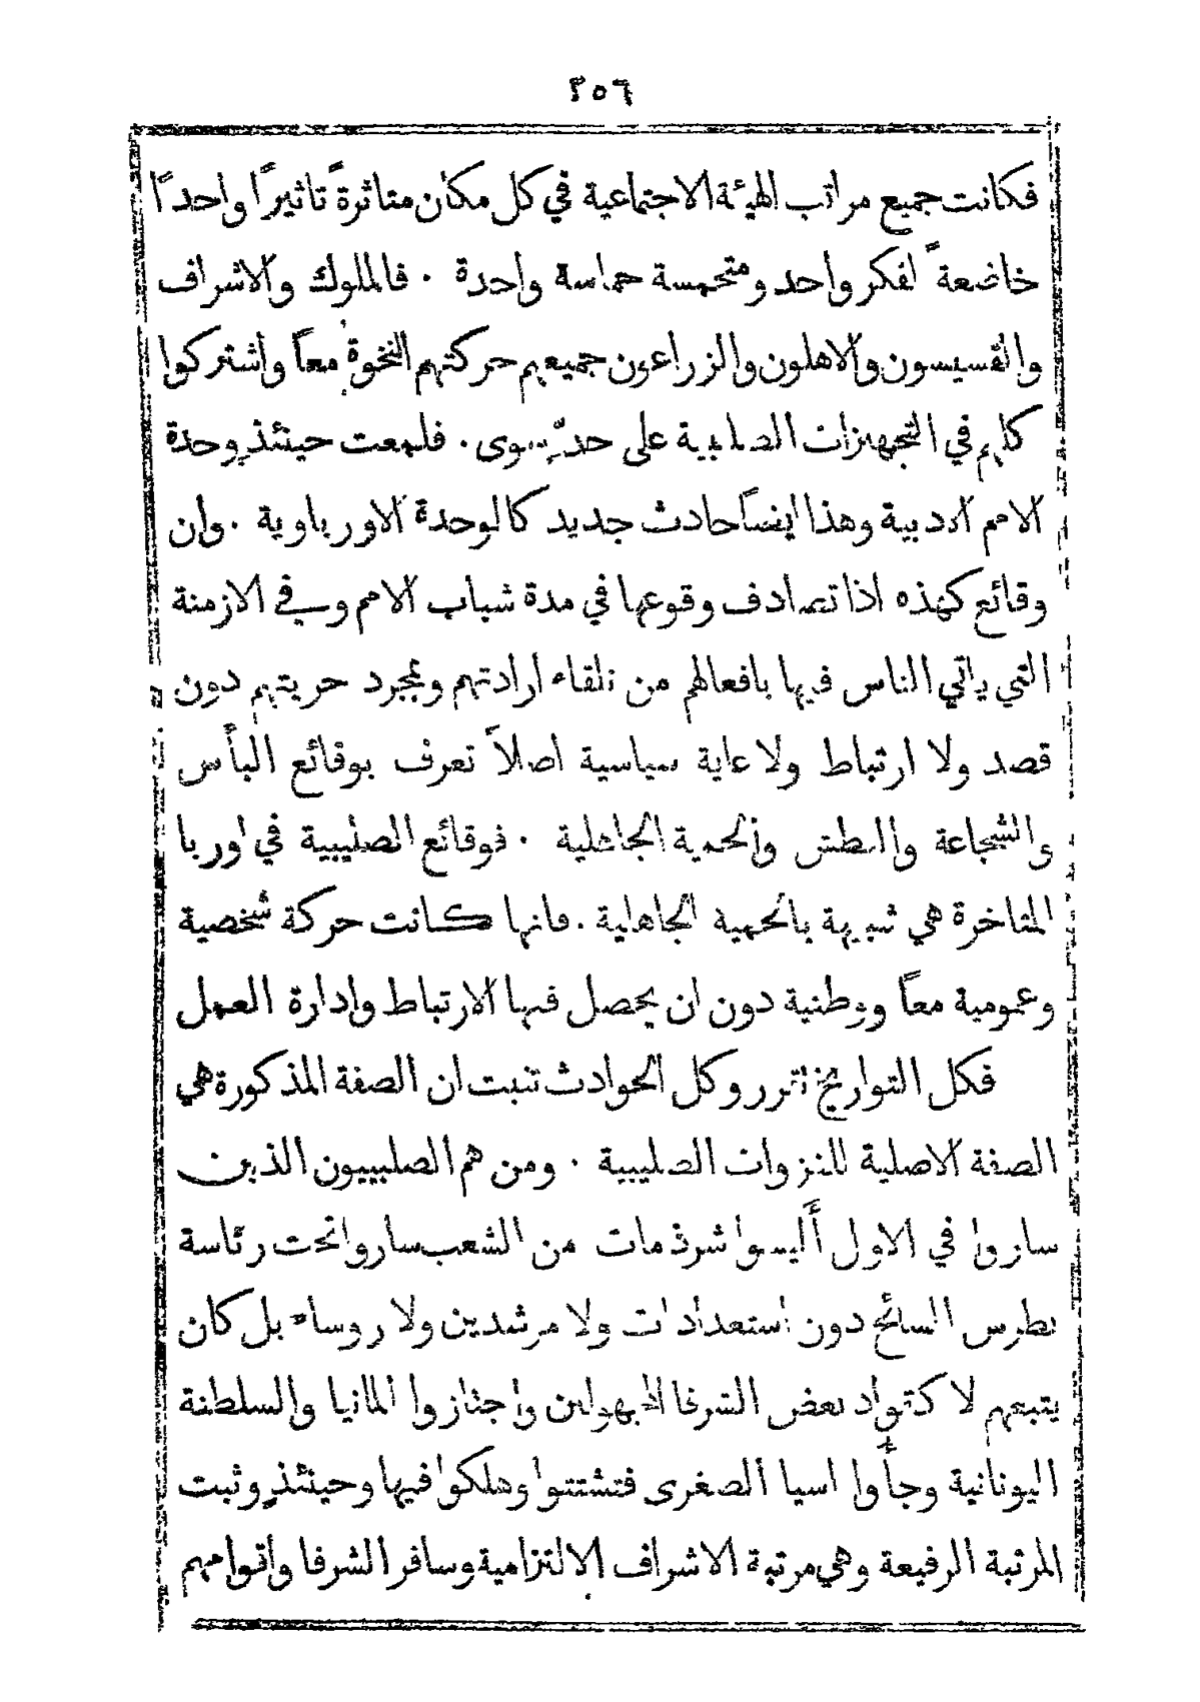 ٢٥٦
فكانت جميع مراتب الهيئة الاجتماعية في كل مكان متاثرةً تاثيرًا واحدًا
خاضعةً لفكر واحد ومتحمسة حماسة واحدة . فالملوك والاشراف
والقسيسون والاهلون والزراعون جميعهم حركتهم النخوة معاً واشتركوا
كلهم في التجهيزات الصليبية على حدٍّ سوى . فلمعت حينئذٍ وحدة
الامم الادبية وهذا ايضاً حادث جديد كالوحدة الاورباوية . وان
وقائع كهذه اذا تصادف وقوعها في مدة شباب الامم وفي الازمنة
التي ياتي الناس فيها بافعالهم من تلقاء ارادتهم وبمجرد حريتهم دون
قصد ولا ارتباط ولا غاية سياسية اصلاً تعرف بوقائع البأس
والشجاعة والبطش والحمية الجاهلية . فوقائع الصليبية في اوربا
المتاخرة هي شبيهة بالحمية الجاهلية . فانها كانت حركة شخصية
وعمومية معاً ووطنية دون ان يحصل فيها الارتباط وادارة العمل
فكل التواريخ تقرر وكل الحوادث تثبت ان الصفة المذكورة هي
الصفة الاصلية للغزوات الصليبية . ومن هم الصليبيون الذين
ساروا في الاول أليسوا شرذمات من الشعب ساروا تحت رئاسة
بطرس السائح دون استعدادات ولا مرشدين ولا روساء بل كان
يتبعهم لا كقواد بعض الشرفا المجهولين واجتازوا المانيا والسلطنة
اليونانية وجأوا اسيا الصغرى فتشتتوا وهلكوا فيها وحينئذٍ وثبت
المرتبة الرفيعة وهي مرتبة الاشراف الالتزامية وسافر الشرفا واقوامهم